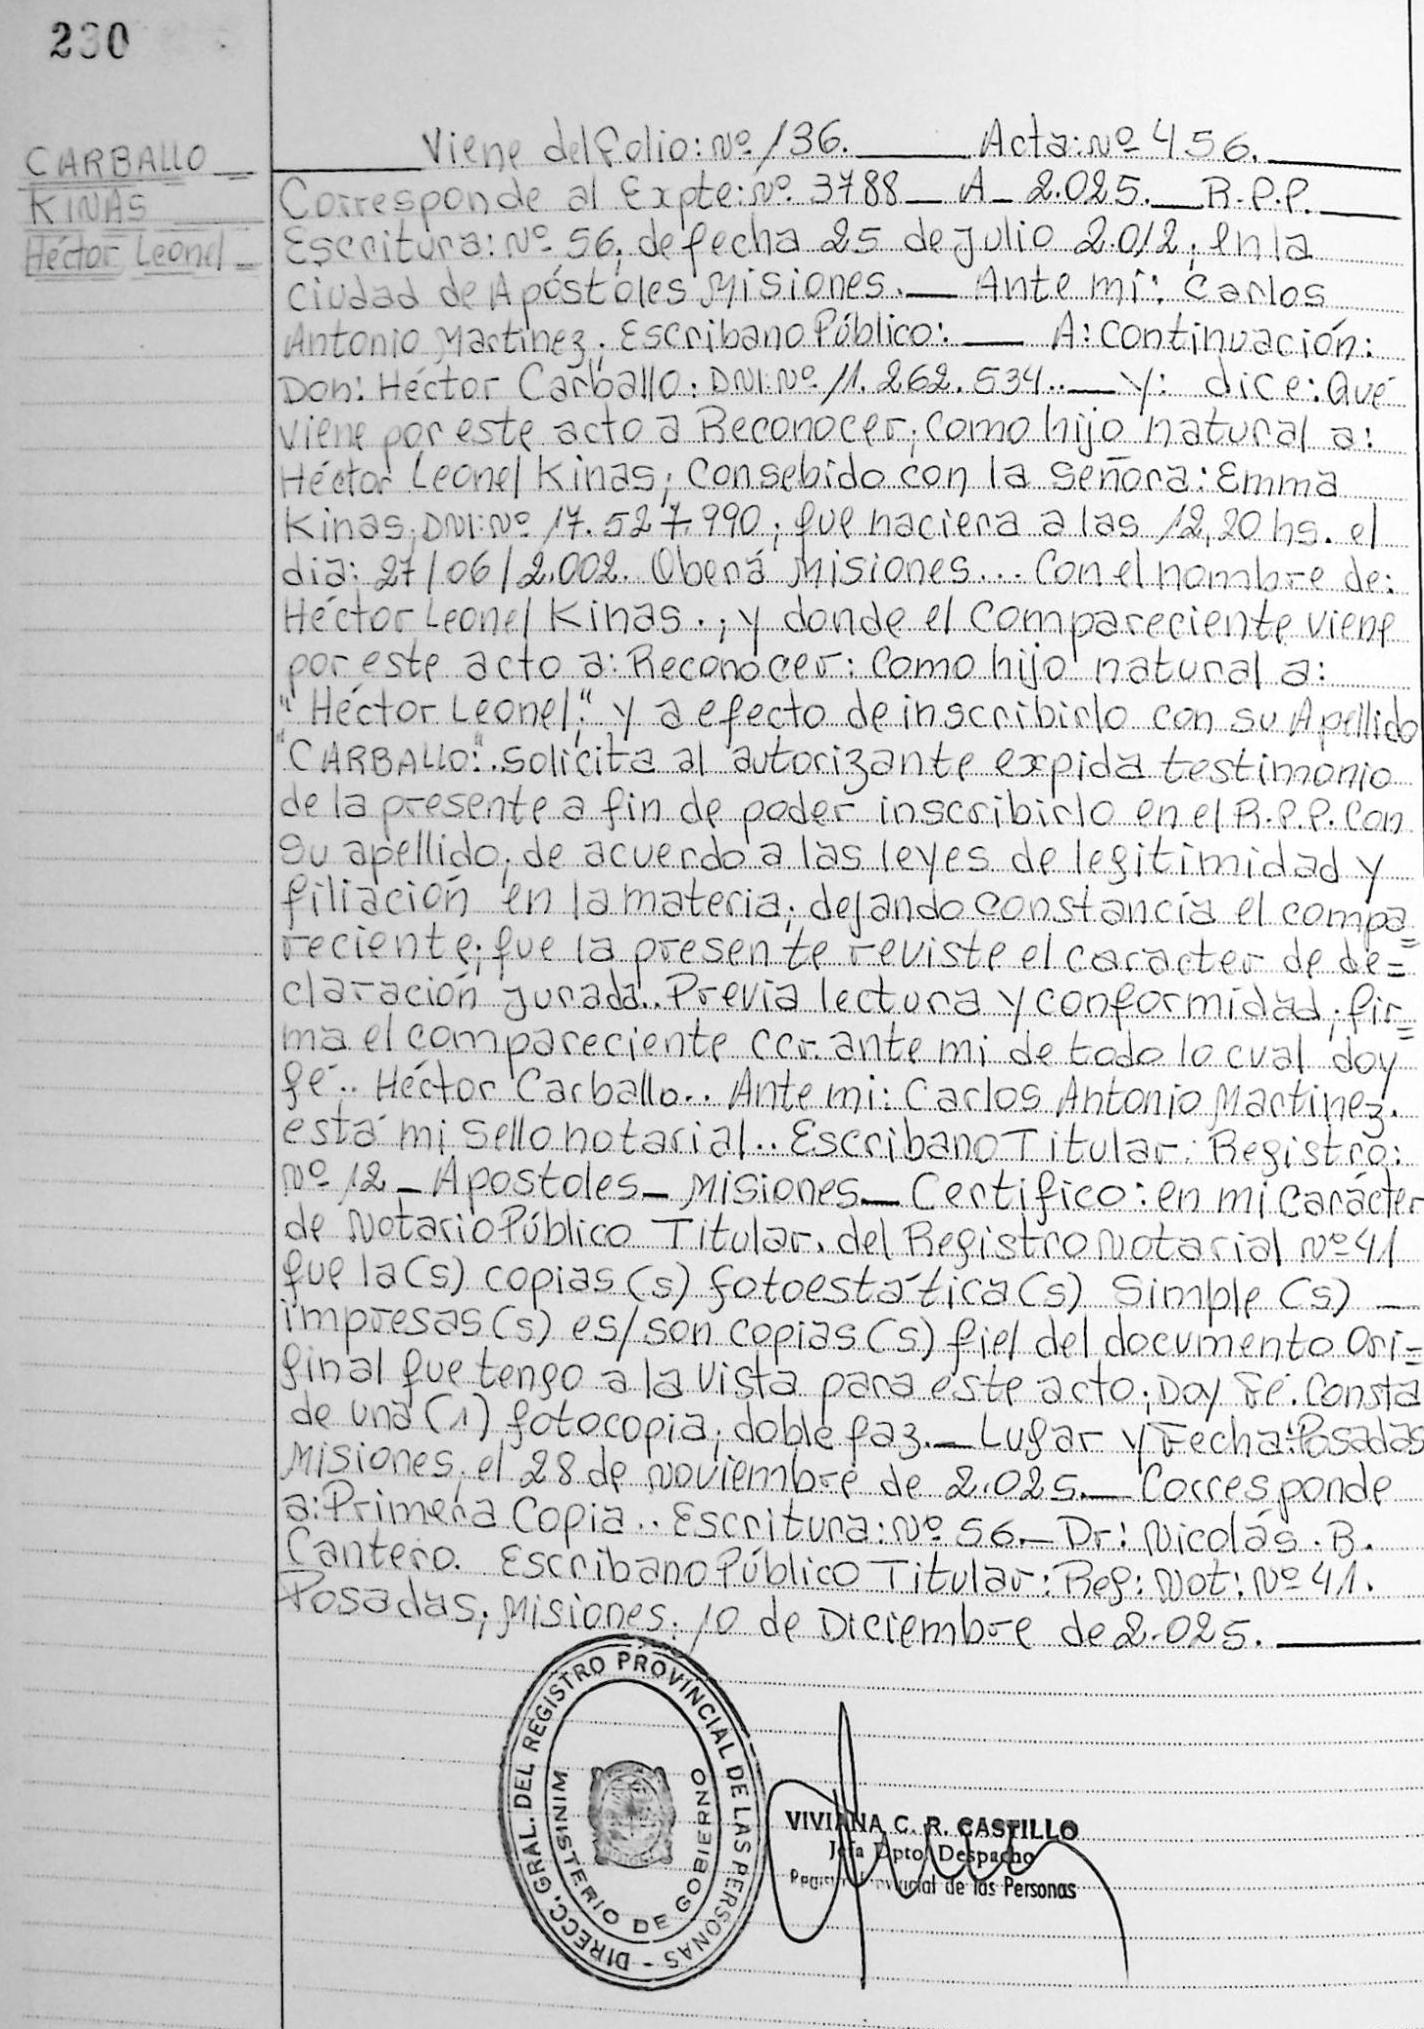 230
CARBALLO
KINAS
Héctor Leonel
Viene del folio: Nº 136. Acta: Nº 456.
Corresponde al Expte: Nº. 3788 _ A _ 2.025. _ R.P.P.
Escritura: Nº 56; de fecha 25 de julio 2.012; en la
ciudad de Apóstoles Misiones. _ Ante mi: Carlos
Antonio Martinez; Escribano Público: _ A: Continuación:
Don: Héctor Carballo: DNI: Nº 11.262.534.. _ y: dice: Qué
viene por este acto a Reconocer; como hijo natural a:
Héctor Leonel Kinas; Consebido con la Señora: Emma
Kinas; DNI: Nº 17.527.990; que naciera a las 12,20 hs. el
día: 27/06/2.002. Oberá Misiones... Con el nombre de:
Héctor Leonel Kinas.; y donde el compareciente viene
por este acto a: Reconocer: como hijo natural a:
"Héctor Leonel;" y a efecto de inscribirlo con su Apellido
"CARBALLO:" Solicita al autorizante expida testimonio
de la presente a fin de poder inscribirlo en el R.P.P. Con
su apellido; de acuerdo a las leyes de legitimidad y
filiación en la materia; dejando constancia el compa=
reciente; que la presente reviste el caracter de de=
claración jurada.. Previa lectura y conformidad; fir=
ma el compareciente ccr. ante mi de todo lo cual doy
fé.. Héctor Carballo.. Ante mi: Carlos Antonio Martinez.
está mi Sello notarial.. Escribano Titular: Registro:
Nº 12 _ Apostoles _ Misiones _ Certifico: en mi carácter
de Notario Público Titular. del Registro Notarial Nº 41
que la(s) copias(s) fotoestática(s) Simple(s) _
impresas(s) es/son copias(s) fiel del documento Ori=
ginal que tengo a la vista para este acto; Doy Fé. Consta
de una (1) fotocopia; doble faz. _ Lugar y Fecha: Posadas
Misiones; el 28 de Noviembre de 2.025. _ Corresponde
a: Primera Copia.. Escritura: Nº 56 _ Dr: Nicolás. B.
Cantero. Escribano Público Titular: Reg: Not: Nº 41.
Posadas; Misiones; 10 de Diciembre de 2.025.
DIRECC. GRAL. DEL REGISTRO PROVINCIAL DE LAS PERSONAS -
MINISTERIO DE GOBIERNO
VIVIANA C. R. CASTILLO
Jefa Dpto. Despacho
Registro Provincial de las Personas